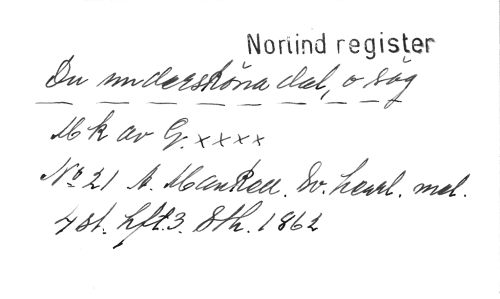 Norlind register
Du undersköna dal, o säg
Mk av G. xxxx
No 21 A. Mankell. Sv. handl. mel.
4 st. hft. 3. Sth. 1862